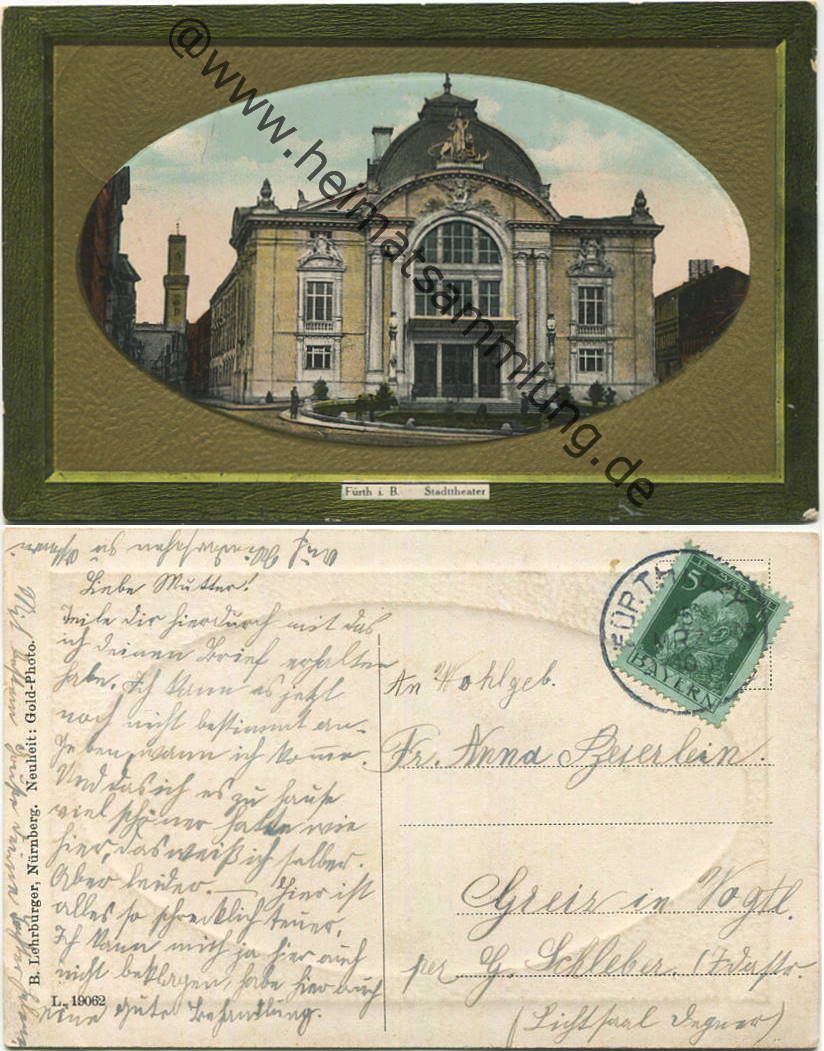 @www.heimatsammlung.de
Fürth i. B. Stadttheater
Auf Wiedersehen
Liebe Mutter!
Teile dir hierdurch mit das
ich deinen Brief erhalten
habe. Ich kann es jetzt
noch nicht bestimmt an-
geben, wann ich komme.
Und das ich es zu hause
viel schöner hatte wie
hier, das weiß ich selber.
Aber leider. — Hier ist
alles so schrecklich teuer.
Ich kann mich ja hier auch
nicht beklagen, habe hier auch
eine gute Behandlung.
B. Lehrburger, Nürnberg. Neuheit: Gold-Photo.
L. 19062
FÜRTH
5
BAYERN
An Wohlgeb.
Fr. Anna Beierlein.
Greiz in Vogtl.
per G. Schleber. Idastr.
(Lichtsaal Degner)